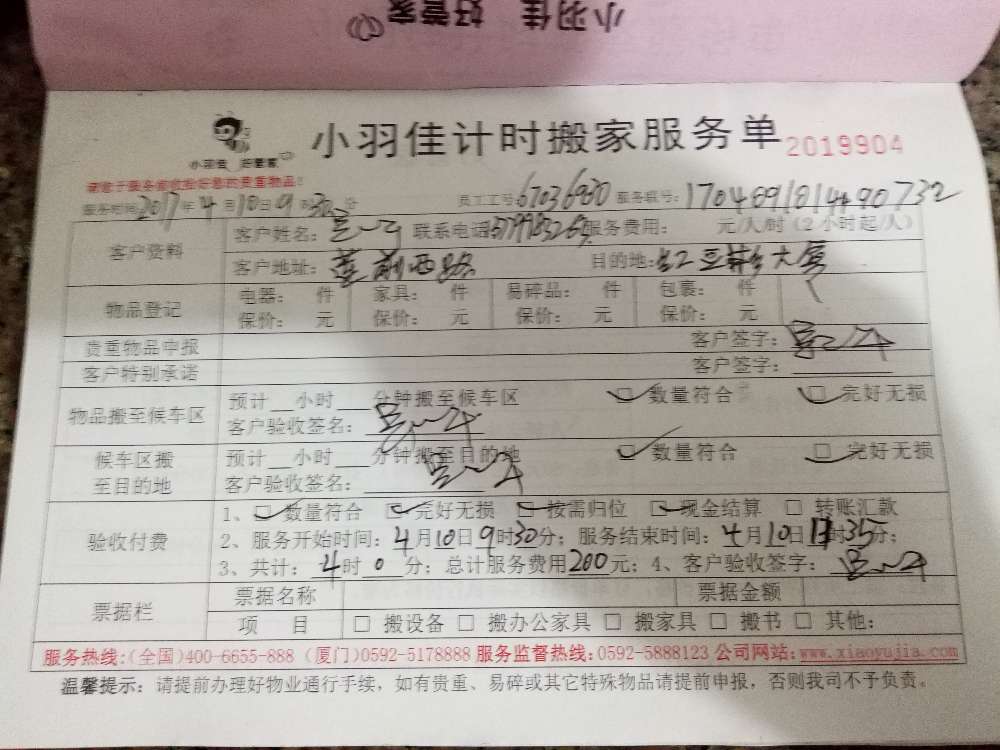 小羽佳 好管家
小羽佳 好管家
小羽佳计时搬家服务单 2019904
服务时间：2017年4月10日9时30分 员工工号：67036930 服务联号：
客户资料 客户姓名： 联系电话： 服务费用： 元/人/时（2小时起/人）
客户地址：莲前西路 目的地： 大厦
物品登记 电器： 件 家具： 件 易碎品： 件 包裹： 件
保价： 元 保价： 元 保价： 元 保价： 元
贵重物品申报 客户签字：
客户特别承诺 客户签字：
物品搬至候车区 预计__小时___分钟搬至候车区 □ 数量符合 □ 完好无损
客户验收签名：
候车区搬至目的地 预计__小时___分钟搬至目的地 □ 数量符合 □ 完好无损
客户验收签名：
验收付费 1、□ 数量符合 □ 完好无损 □ 按需归位 □ 现金结算 □ 转账汇款
2、服务开始时间：4月10日9时30分；服务结束时间：4月10日 时35分；
3、共计：4时0分；总计服务费用200元；4、客户验收签字：
票据栏 票据名称 票据金额
项 目 □ 搬设备 □ 搬办公家具 □ 搬家具 □ 搬书 □ 其他：
服务热线：(全国)400-6655-888 (厦门)0592-5178888 服务监督热线：0592-5888123 公司网站：www.xiaoyujia.com
温馨提示：请提前办理好物业通行手续，如有贵重、易碎或其它特殊物品请提前申报，否则我司不予负责。